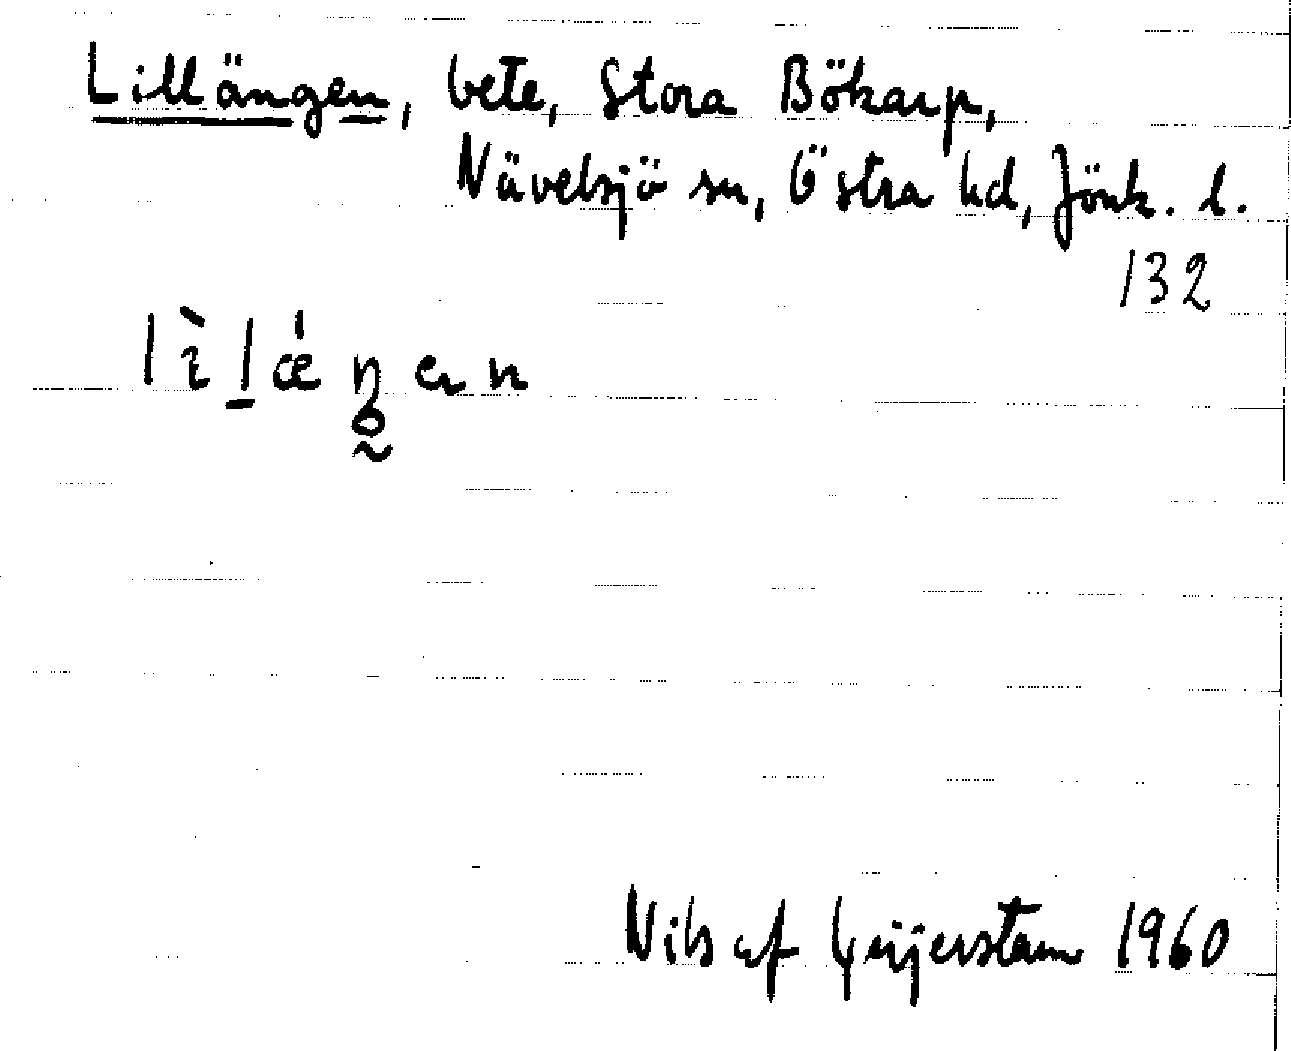 Lillängen, bete, Stora Bökarp,
Nävelsjö sn, Östra hd, Jönk. l.
132
Nils af Geijerstam 1960